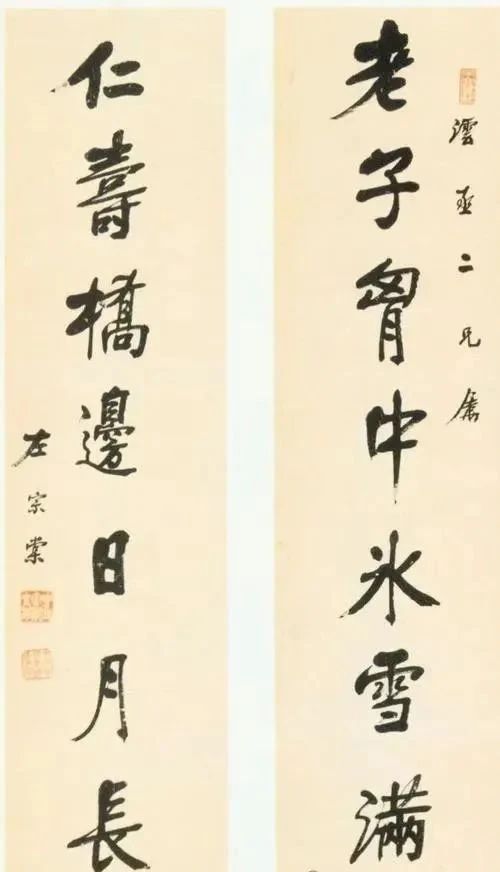 澐亟二兄屬
老子胷中氷雪滿
仁壽橋邊日月長
左宗棠